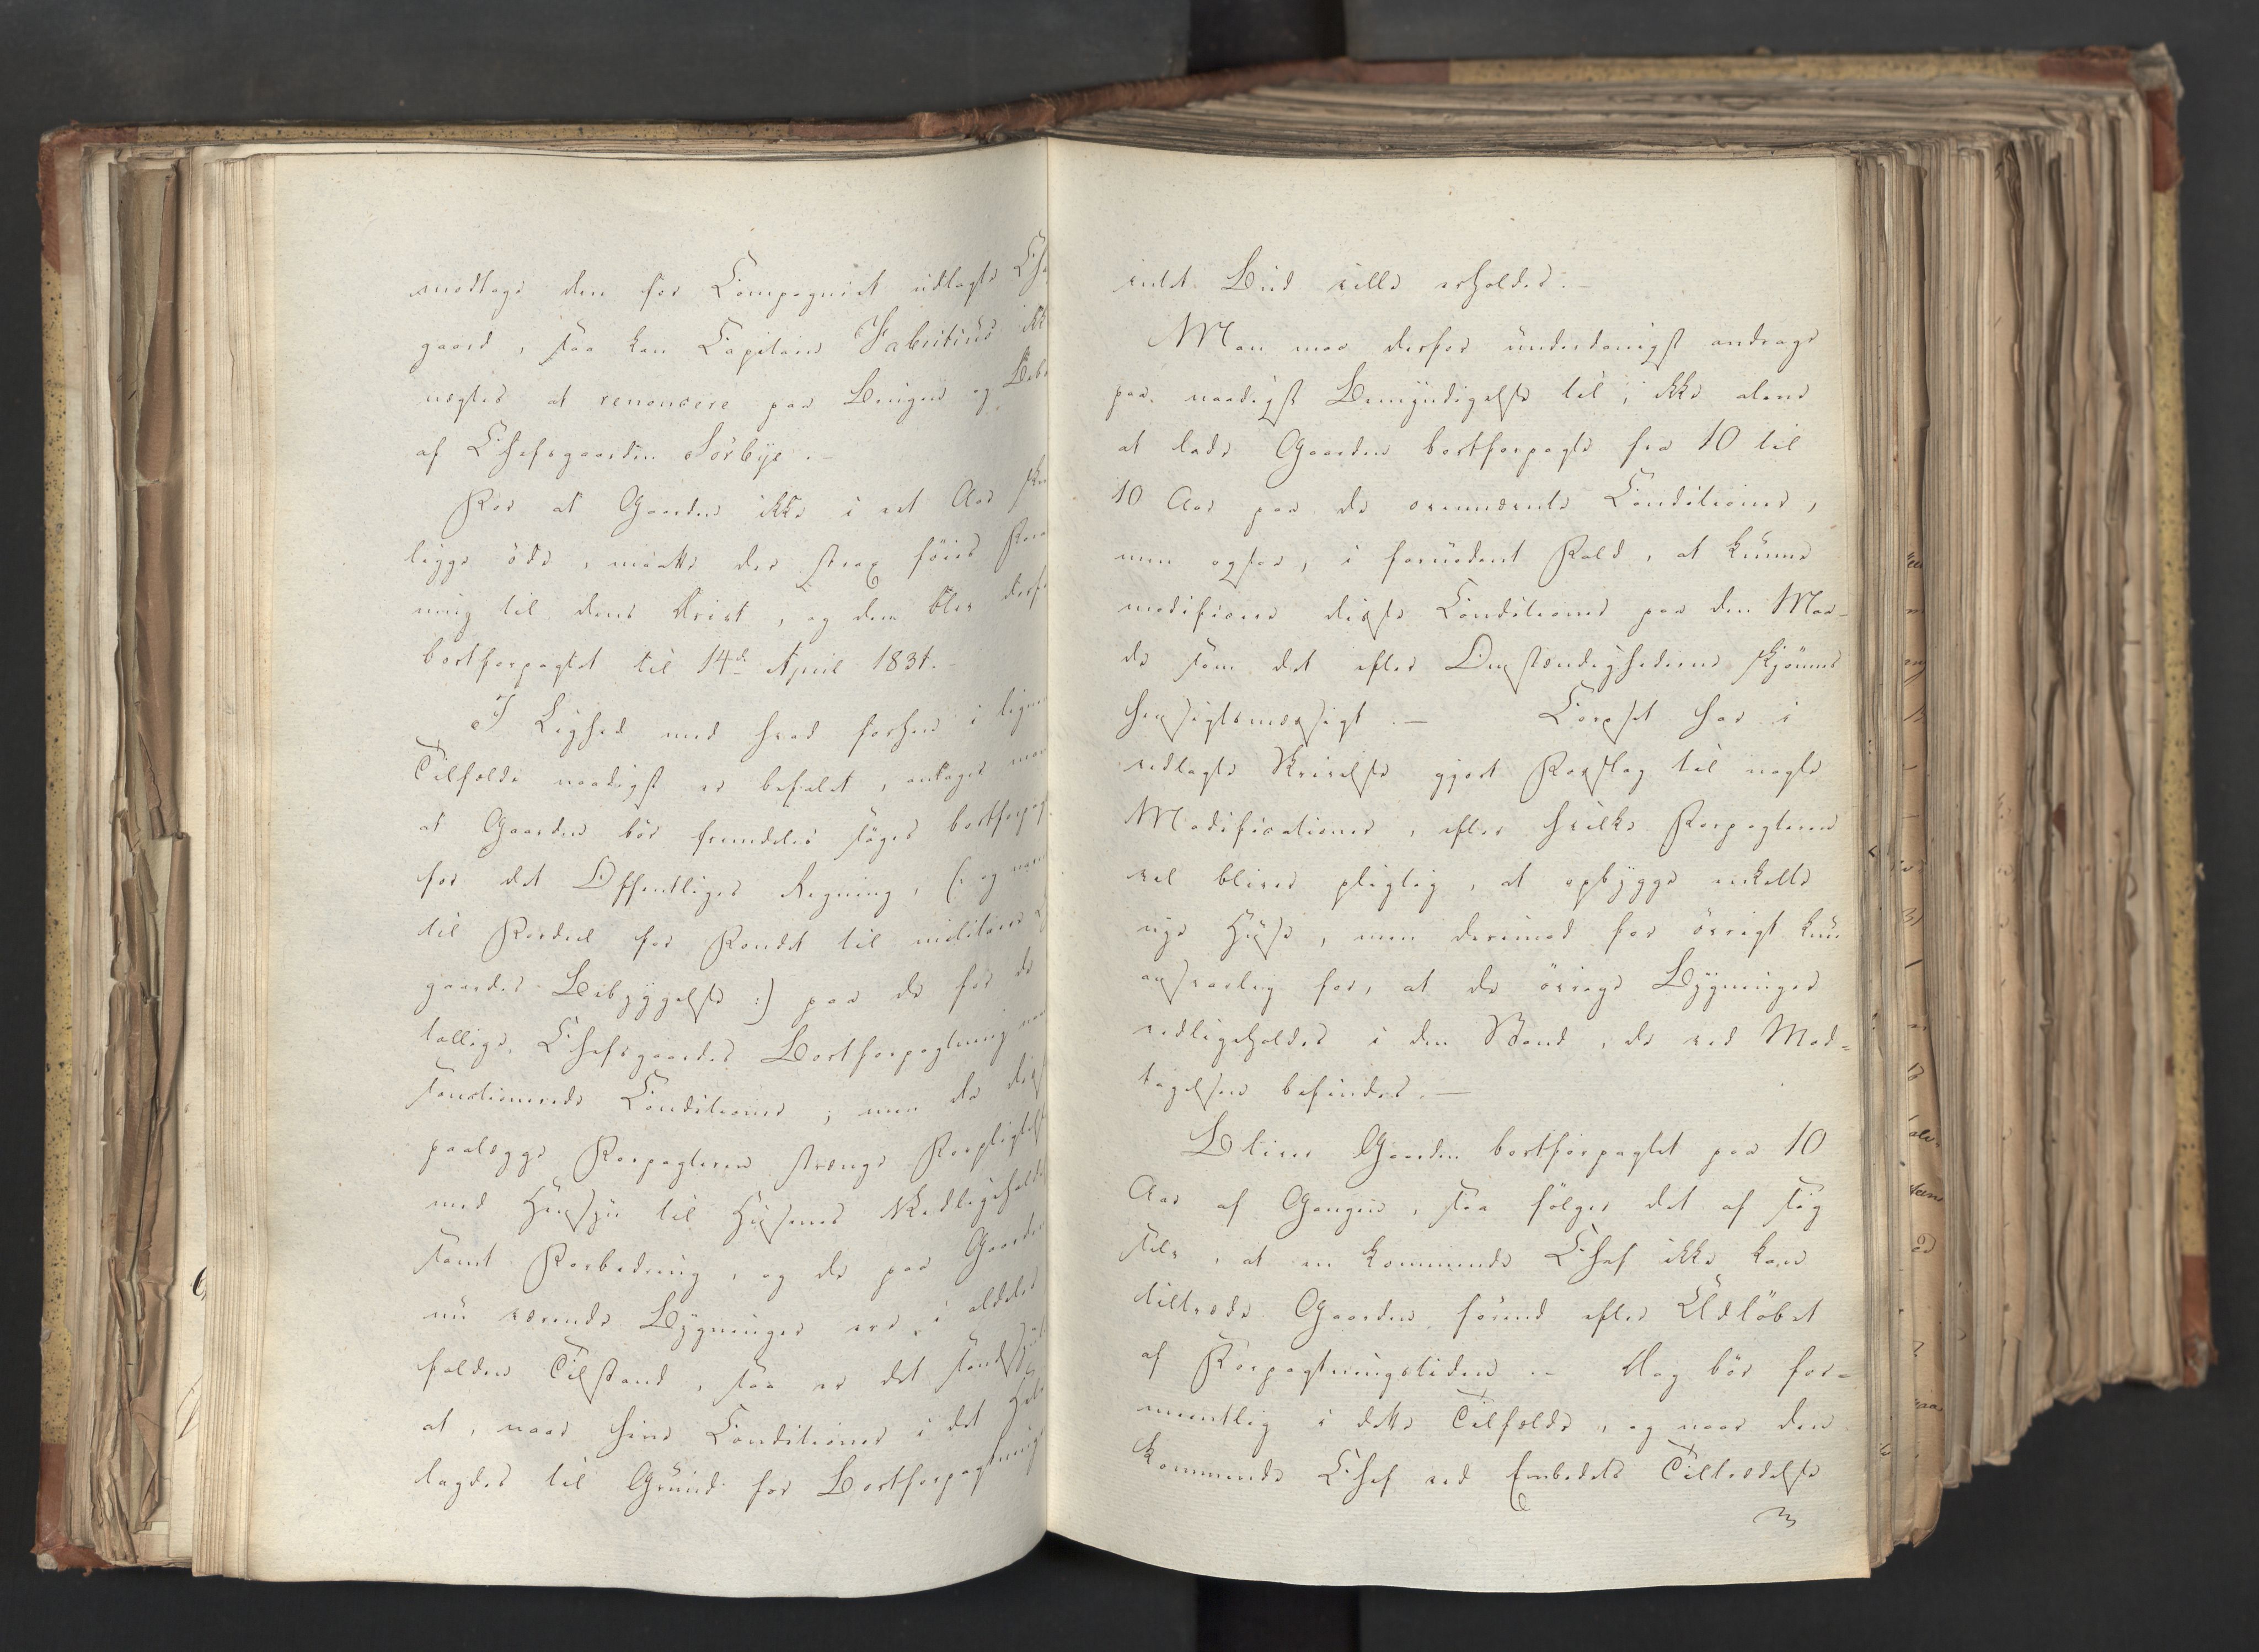 modtage den for Compagniet udlagte Che
gaard, saa kan Capitain Fabritius ikk
negtes at renoncere paa Brugen og Bebo
af Chefsgaarden Sørbye.-
For at Gaarden ikke i et Aar sku
ligge øde, maatte der strax føies Foran
ning til dens Drivt, og den blev derfo
bortforpagtet til 14de April 1831.-
I Lighed med hvad forhen i lignen
Tilfælde naadigst er befalet, antages man
at Gaarden bør fremdeles søges bortforpag
for det Offentliges Regning, (: og nav
til Fordeel for Fondet til militaire
gaardes Bebyggelse :) paa de for de
tallige Chefsgaardes Bortforpagtning naa
sanctionerede Conditioner; men da diss
paalægge Forpagteren strænge Forpligtels
med Hensyn til Husenes Vedligeholde
samt Forbedring, og de paa Gaarden
nu værende Bygninger ere i aldeles
falden Tilstand, saa er det sandsynl
at, naar hine Conditioner i det Hele
lagdes til Grund for Bortforpagtninge
intet Bud ville erholdes.-
Man maa derfor underdanigst andrage
paa naadigst Bemyndigelse til, ikke alene
at lade Gaarden bortforpagte fra 10 til
10 Aar paa de ovennævnte Conditioner,
men ogsaa, i fornødent Fald, at kunne
modificere disse Conditioner paa den Maa-
de som det efter Omstændighederne skjønnes
hensigtsmæssigt.- Corpset har i
vedlagte Skrivelse gjort Forslag til nogle
Modificationer, efter hvilke Forpagteren
vel bliver pligtig, at opbygge enkelte
nye Huse, men derimod for øvrigt kun
ansvarlig for, at de øvrige Bygninger
vedligeholdes i den Stand, de ved Mod=
tagelsen befindes.-
Bliver Gaarden bortforpagtet paa 10
Aar af Gangen, saa følger det af sig
selv, at en kommende Chef ikke kan
tiltræde Gaarden førend efter Udløbet
af Forpagtningstiden.- Dog bør for=
mentlig i dette Tilfælde, og naar den
kommende Chef ved Embedets Tiltrædelse